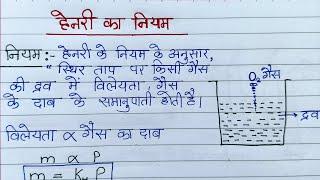 हेनरी का नियम
नियम:- हेनरी के नियम के अनुसार,
"स्थिर ताप पर किसी गैस
की द्रव में विलेयता, गैस
के दाब के समानुपाती होती है।
O₂ गैस
द्रव
विलेयता ∝ गैस का दाब
m ∝ P
m = K_H P